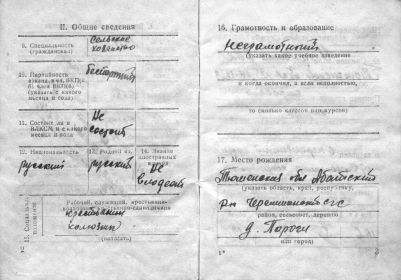 II. Общие сведения
9. Специальность (гражданская)
Сельское хозяйство
10. Партийность
беспартийн
(указать с какого месяца и года)
11. Состоит ли в ВЛКСМ и с какого месяца и года
Не состоит
12. Национальность
русский
13. Родной яз.
русский
14. Знание иностранных языков
Не владеет
15. Социальн. положение
Рабочий, служащий, крестьянин-
крестьянин
колхозник
(указать)
16. Грамотность и образование
Неграмотный
(указать какое учебное заведение
и когда окончил, а если неполностью,
то сколько классов или курсов)
17. Место рождения
Тюменская обл Абатский
(указать область, край, республику,
р-н Черемшанский с/с
район, сельсовет, деревню
д. Пороги
или город)